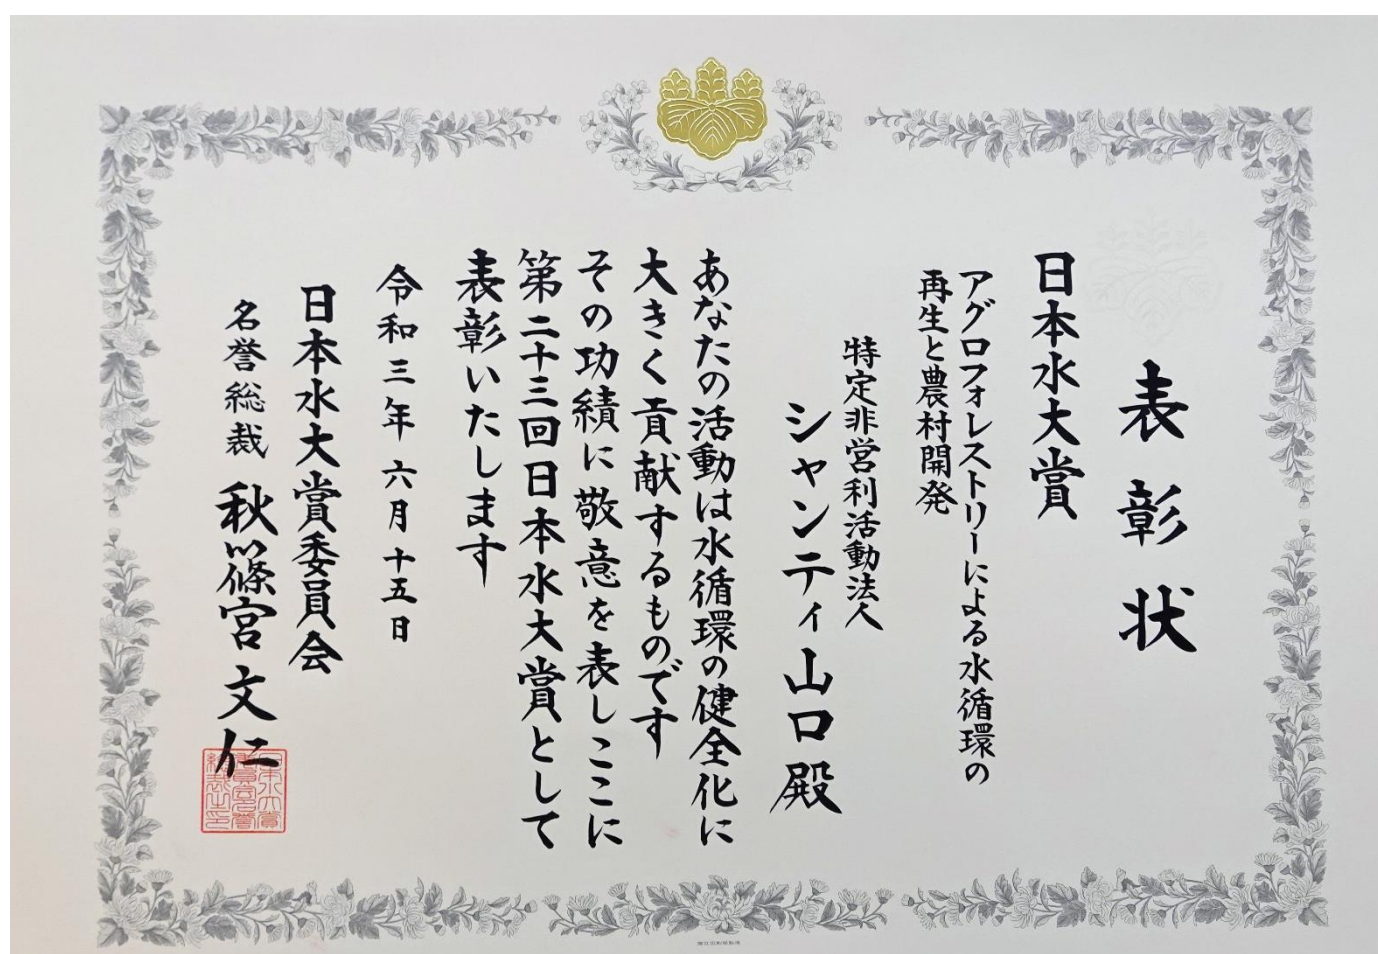 表彰状
日本水大賞
アグロフォレストリーによる水循環の
再生と農村開発
特定非営利活動法人
シャンティ山口殿
あなたの活動は水循環の健全化に
大きく貢献するものです
その功績に敬意を表しここに
第二十三回日本水大賞として
表彰いたします
令和三年六月十五日
日本水大賞委員会
名誉総裁 秋篠宮文仁